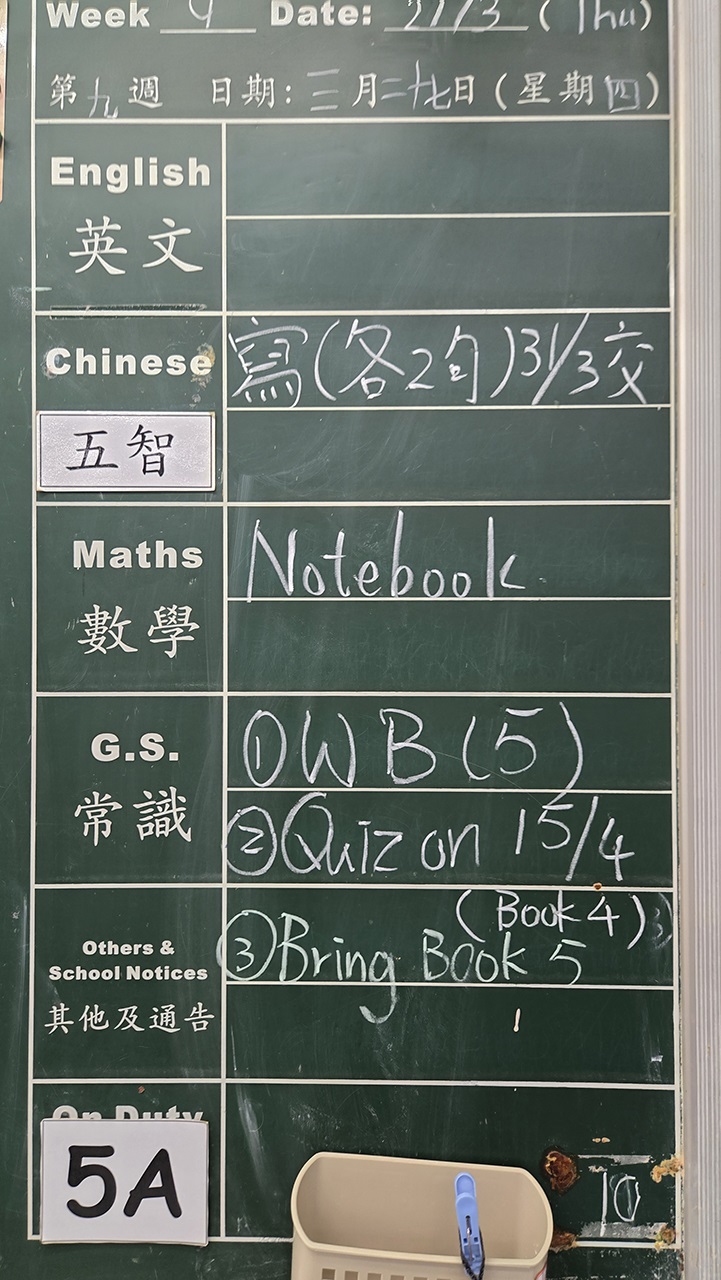 Week 9 Date: 27/3 (Thu)
第九週 日期:三月二十七日(星期四)
English
英文
Chinese 寫(各2句)31/3交
五智
Maths Notebook
數學
G.S. ①WB(5)
常識 ②Quiz on 15/4
(Book 4)
Others & ③Bring Book 5
School Notices
其他及通告
On Duty
5A
10